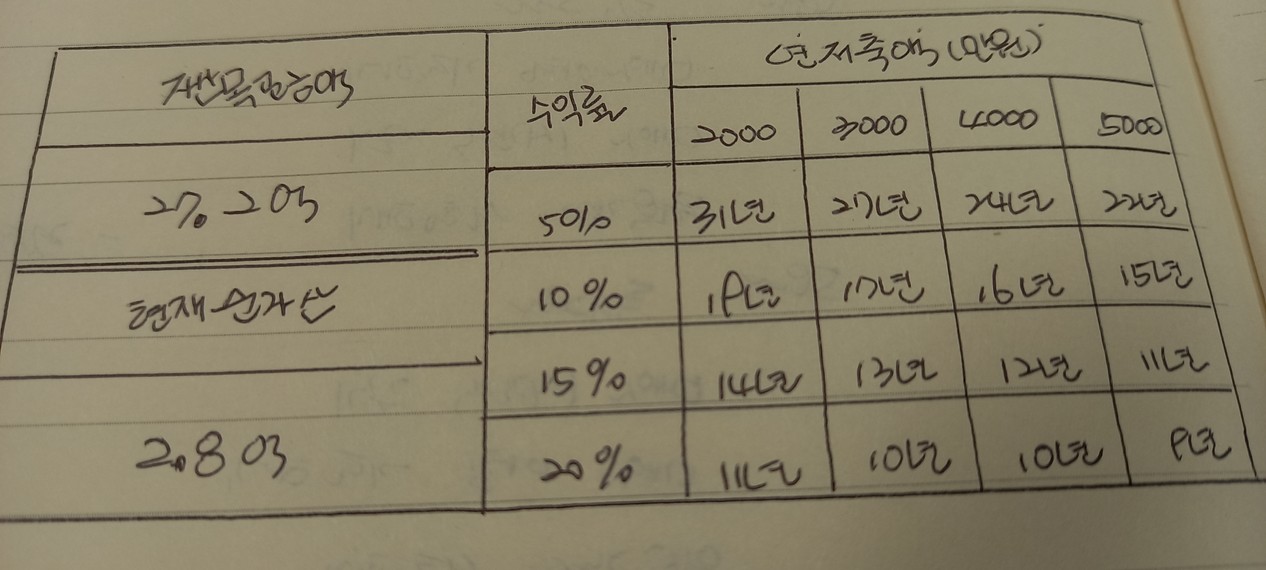 재산목표금액 수익률 연저축액(만원)
2000 3000 4000 5000
27.2억 5% 31년 27년 24년 22년
현재순자산 10% 19년 17년 16년 15년
15% 14년 13년 12년 11년
2.8억 20% 11년 10년 10년 9년